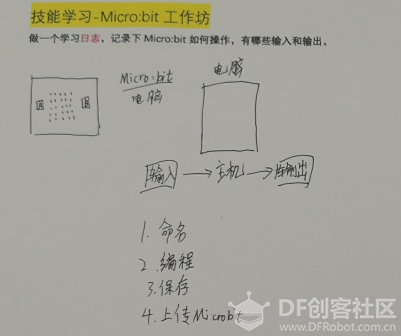 技能学习-Micro:bit 工作坊
做一个学习日志，记录下 Micro:bit 如何操作，有哪些输入和输出。
Micro:bit
电脑
电脑
A
B
输入 → 主机 → 输出
1. 命名
2. 编程
3. 保存
4. 上传 Microbit
DF创客社区
www.DFRobot.com.cn